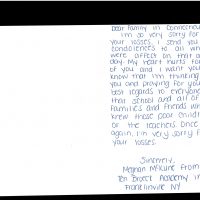 Dear Family in Connecticut
I'm so very sorry for
your losses. I send you
condolences to all who
were affects on that
day. My heart hurts for
of you and I want you
know that I'm thinking
you and praying for you
best regards to everyone
that school and all of
Families and Friends who
knew these poor children
of the teachers once
again, I'm very sorry for
your losses.
Sincerely,
Meghan McKune From
Ten Broeck Academy in
Franklinville NY